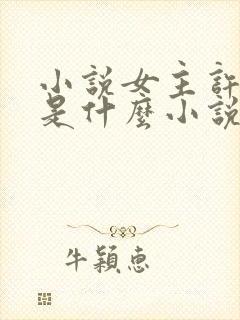 小說女主許
是什麼小說
牛穎惠